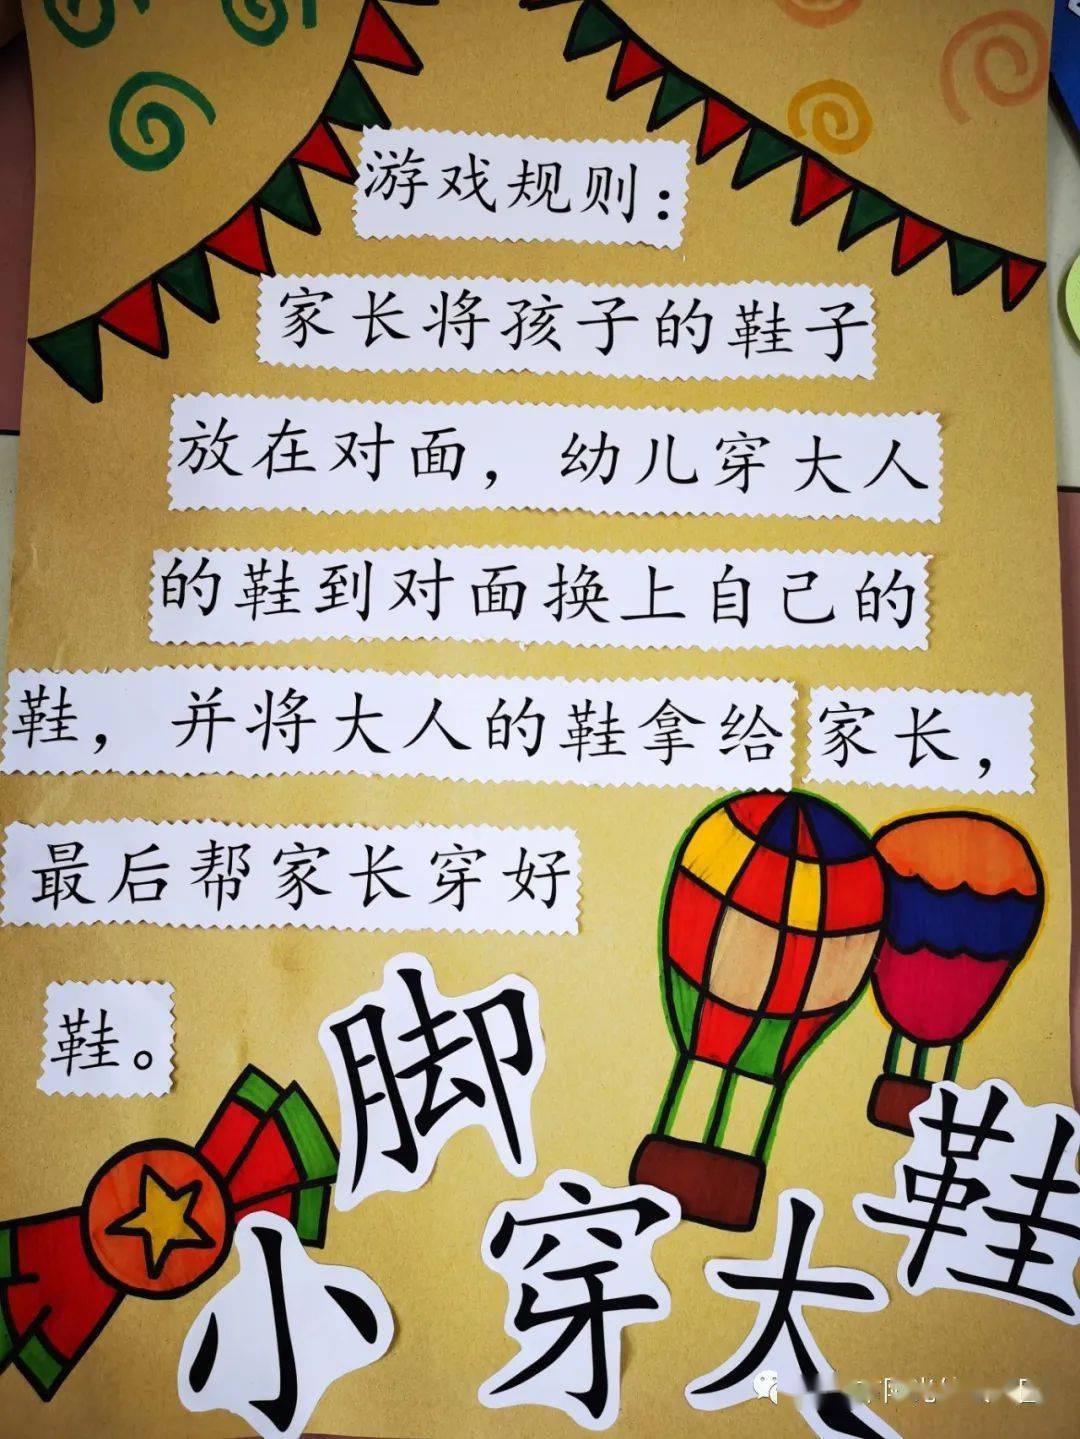 游戏规则：
家长将孩子的鞋子
放在对面，幼儿穿大人
的鞋到对面换上自己的
鞋，并将大人的鞋拿给家长，
最后帮家长穿好
鞋。
小脚穿大鞋